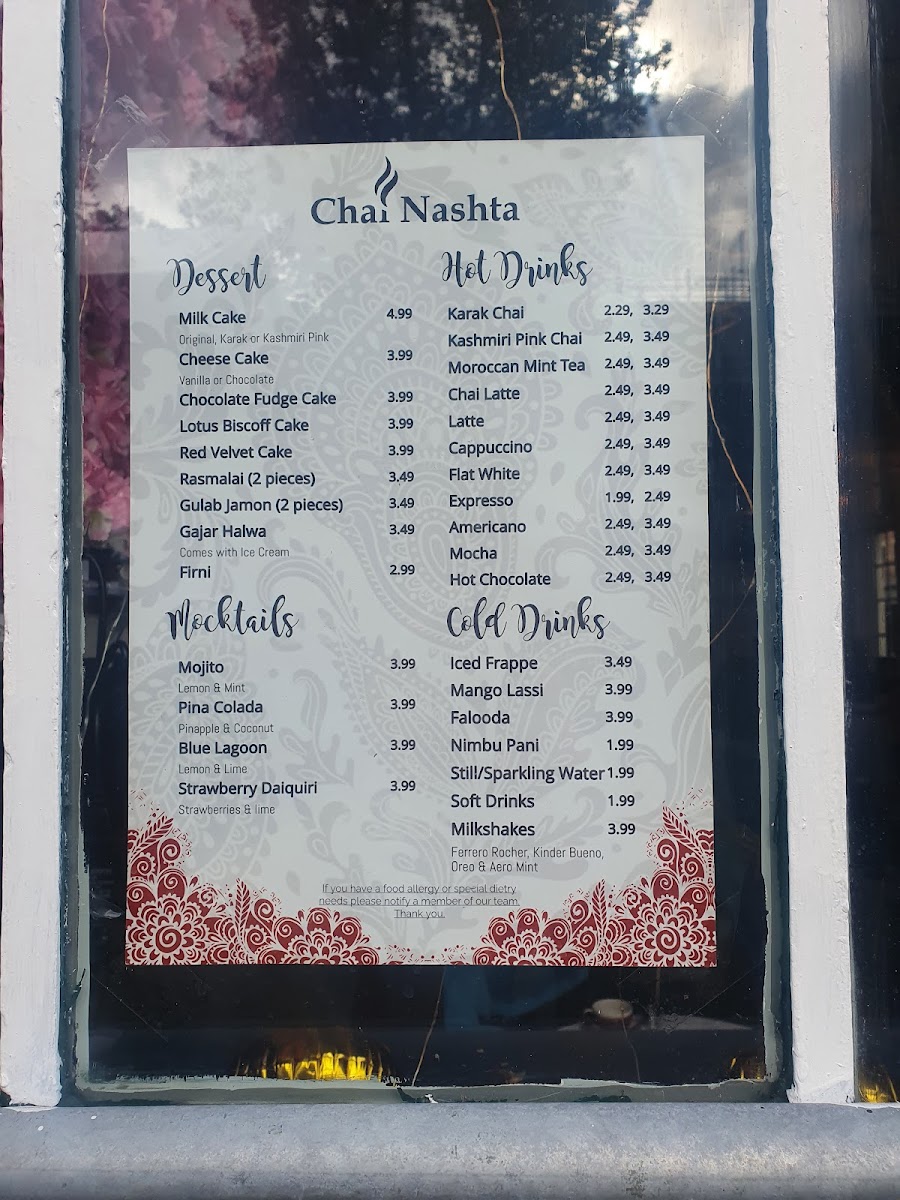 Chai Nashta
Dessert
Milk Cake 4.99
Original, Karak or Kashmiri Pink
Cheese Cake 3.99
Vanilla or Chocolate
Chocolate Fudge Cake 3.99
Lotus Biscoff Cake 3.99
Red Velvet Cake 3.99
Rasmalai (2 pieces) 3.49
Gulab Jamon (2 pieces) 3.49
Gajar Halwa 3.49
Comes with Ice Cream
Firni 2.99
Mocktails
Mojito 3.99
Lemon & Mint
Pina Colada 3.99
Pinapple & Coconut
Blue Lagoon 3.99
Lemon & Lime
Strawberry Daiquiri 3.99
Strawberries & lime
Hot Drinks
Karak Chai 2.29, 3.29
Kashmiri Pink Chai 2.49, 3.49
Moroccan Mint Tea 2.49, 3.49
Chai Latte 2.49, 3.49
Latte 2.49, 3.49
Cappuccino 2.49, 3.49
Flat White 2.49, 3.49
Expresso 1.99, 2.49
Americano 2.49, 3.49
Mocha 2.49, 3.49
Hot Chocolate 2.49, 3.49
Cold Drinks
Iced Frappe 3.49
Mango Lassi 3.99
Falooda 3.99
Nimbu Pani 1.99
Still/Sparkling Water 1.99
Soft Drinks 1.99
Milkshakes 3.99
Ferrero Rocher, Kinder Bueno,
Oreo & Aero Mint
If you have a food allergy or special dietry
needs please notify a member of our team.
Thank you.